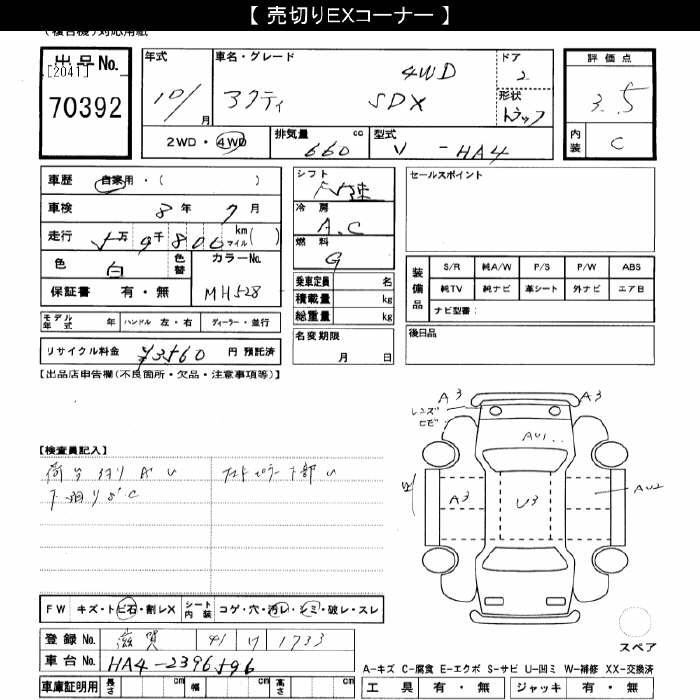 【 売切りEXコーナー 】
(複合機)対応用紙
出品No.
[2041]
70392
年式
10/ 月
車名・グレード
アクティ SDX 4WD
ドア
2
形状
トラック
評価点
3.5
内装
C
2WD・4WD
排気量 cc
660
型式
V - HA4
車歴 自家用・( )
車検 8年 7月
走行 5万9千800 km マイル( )
色 白 色替
カラーNo.
MH528
保証書 有・無
モデル年式 年 ハンドル 左・右 ディーラー・並行
リサイクル料金 ¥3560 円 預託済
シフト
F5速
冷房
A.C
燃料
G
乗車定員 名
積載量 kg
総重量 kg
名変期限
月 日
セールスポイント
装備品
S/R 純A/W P/S P/W ABS
純TV 純ナビ 革シート 外ナビ エアB
ナビ型番:
後日品
【出品店申告欄(不良箇所・欠品・注意事項等)】
【検査員記入】
下廻りSC
A3
A3
レンズ
ヒビ
AU1
A3
U3
AU2
FW キズ・トビ石・割レX シート内装 コゲ・穴・汚レ・シミ・破レ・スレ
登録 No. 滋賀 41 1733
車台 No. HA4-2396596
車庫証明用 長さ cm 幅 cm 高さ cm
スペア
A-キズ C-腐食 E-エクボ S-サビ U-凹ミ W-補修 XX-交換済
工具 有・無 ジャッキ 有・無